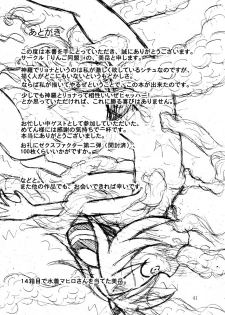 あとがき
この度は本書を手にとっていただき、誠にありがとうございます。
サークル「りんご同盟」の、美岳と申します。
神羅でリョナというのは私が著しく欲しているシチュなのですが、
描く人がどこにもいませんので、
ならば私が描いてやるぜということで、この本が出来たのです。
少しでも神羅とリョナって相性いいぜヒャッハー！
とか思っていただければ、これに勝る喜びはありません。
お忙しい中ゲストとして参加していただいた、
めてん様には感謝の気持ちで一杯です。
本当にありがとうございました。
お礼にゼクスファクター第二弾（開封済）、
100枚くらいいかがですか。
などと。
また他の作品でも、お会いできれば幸いです。
14箱目で水着マヒロさんを当てた美岳。
41